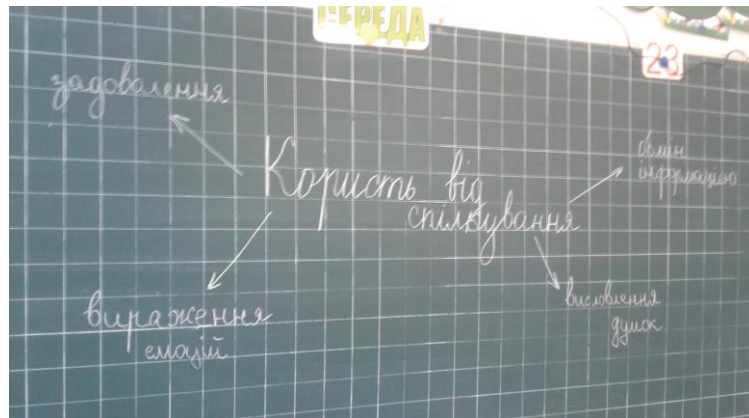 СЕРЕДА
23
задоволення
Користь від
спілкування
обмін
інформацією
вираження
емоцій
висловлення
думок